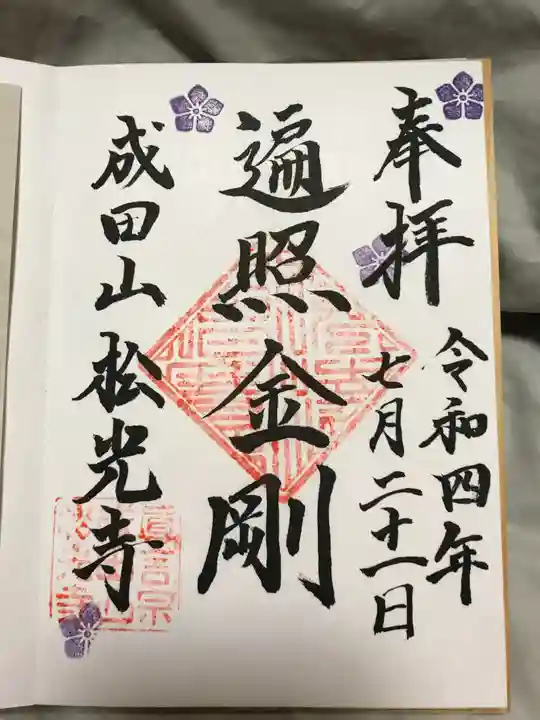 奉拝
令和四年
七月二十一日
遍照金剛
成田山松光寺